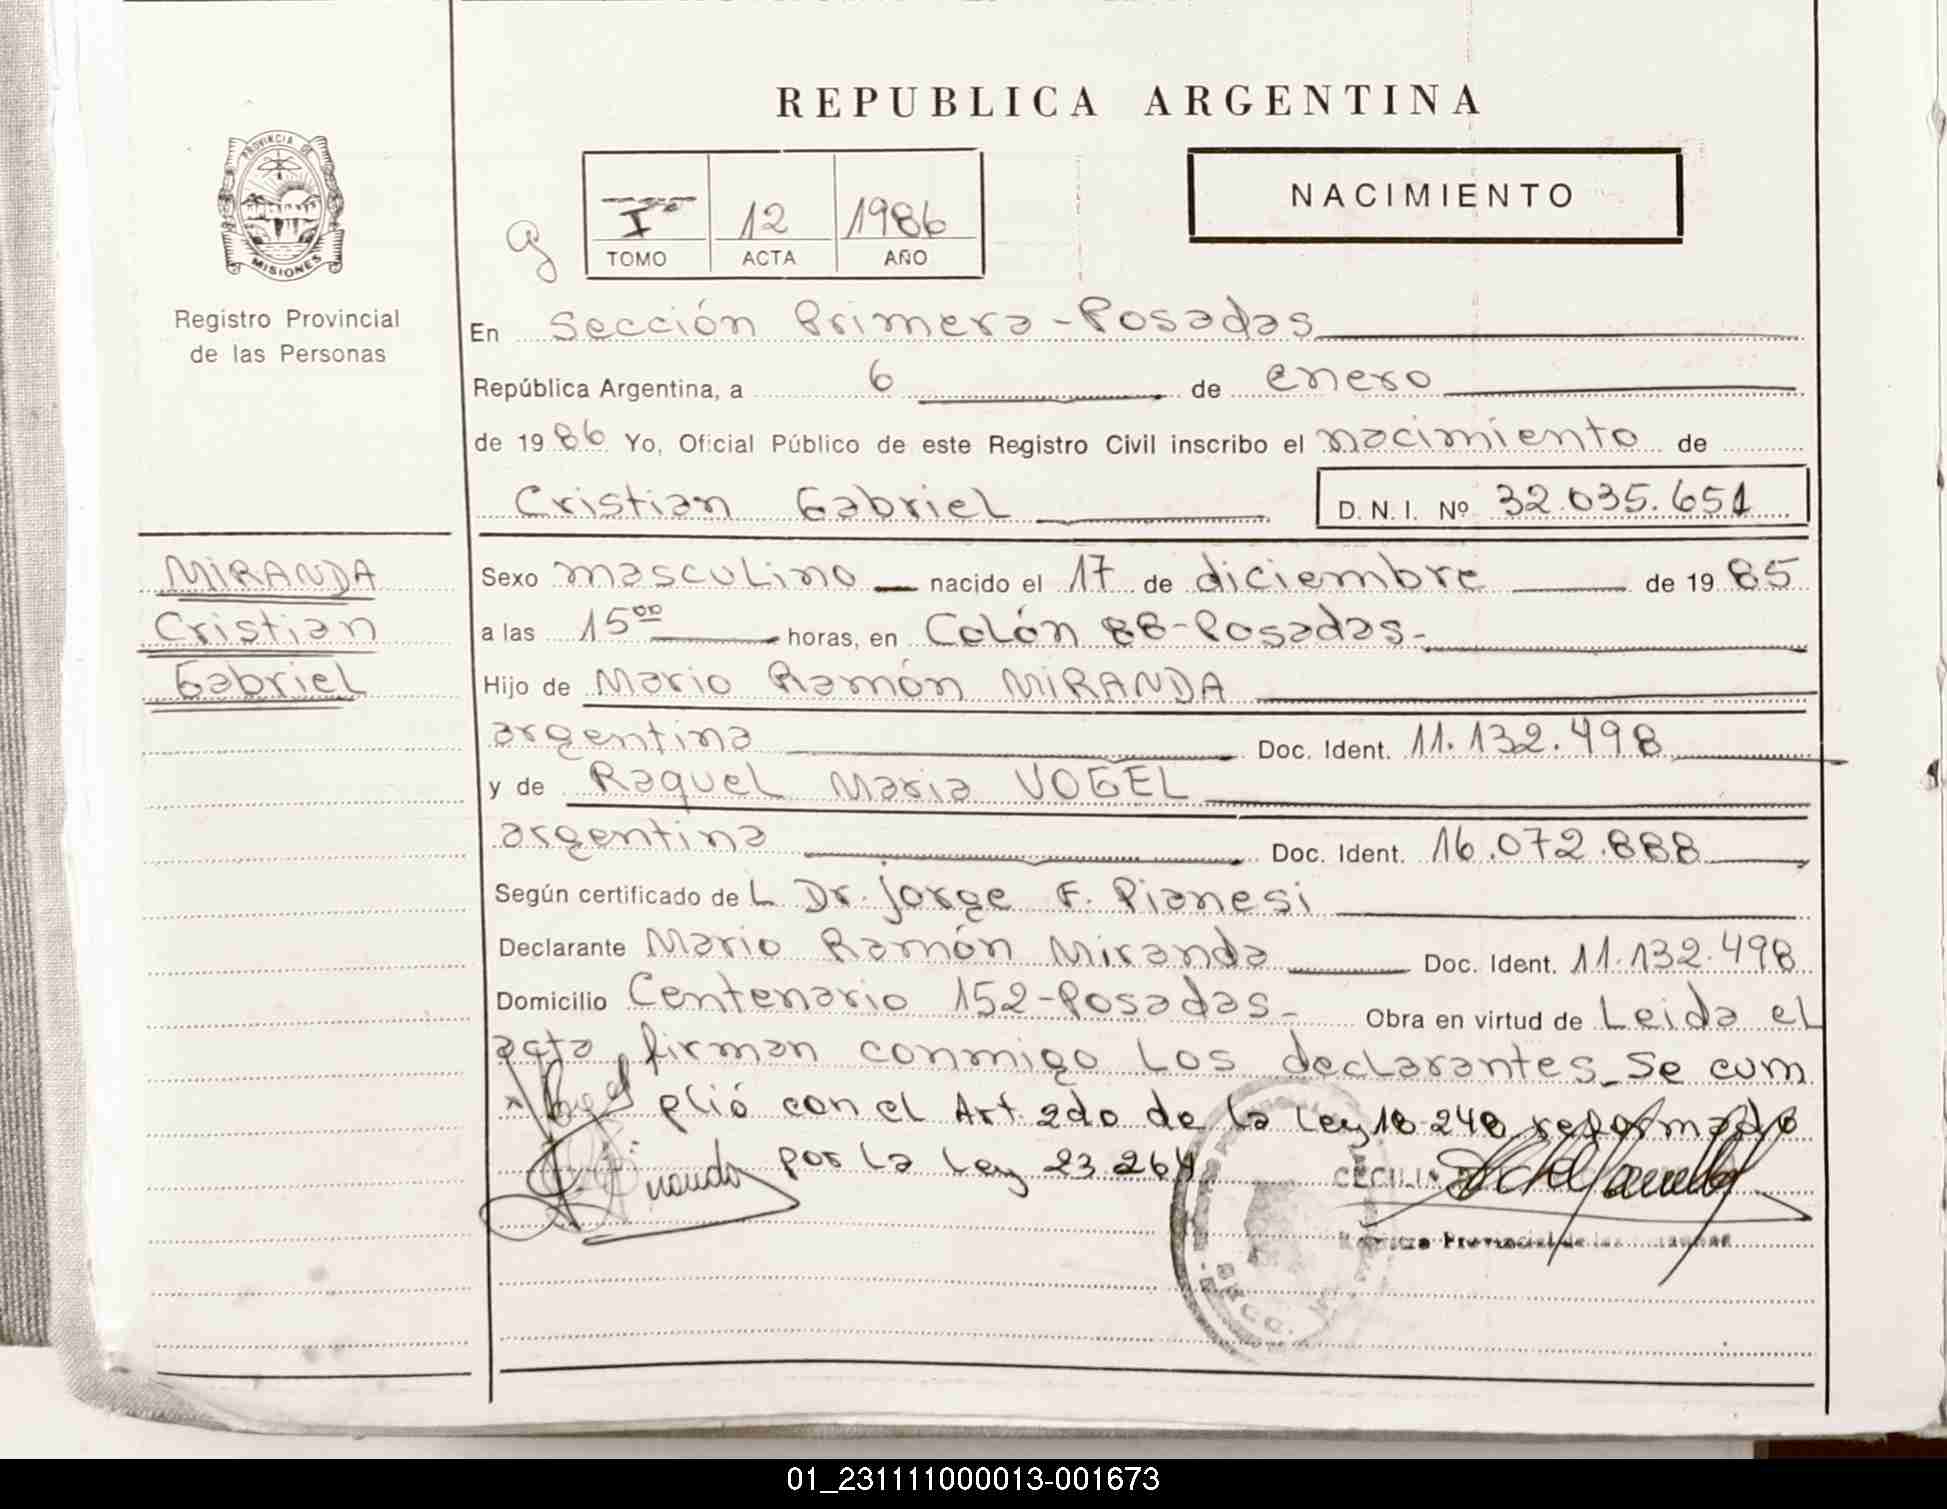 REPUBLICA ARGENTINA
PROVINCIA DE
MISIONES
Registro Provincial
de las Personas
I 12 1986
TOMO ACTA AÑO
NACIMIENTO
En Sección Primera - Posadas
República Argentina, a 6 de enero
de 1986 Yo, Oficial Público de este Registro Civil inscribo el nacimiento de
Cristian Gabriel D. N. I. Nº 32.035.651
MIRANDA
Cristian
Gabriel
Sexo masculino nacido el 17 de diciembre de 1985
a las 15 00 horas, en Colón 88 - Posadas -
Hijo de Mario Ramón MIRANDA
argentina Doc. Ident. 11.132.498
y de Raquel Maria VOGEL
argentina Doc. Ident. 16.072.888
Según certificado de L Dr. Jorge F. Pianesi
Declarante Mario Ramón Miranda Doc. Ident. 11.132.498
Domicilio Centenario 152 - Posadas - Obra en virtud de Leida el
acta, firman conmigo los declarantes - Se cum
plió con el Art. 2do de la Ley 18.248 reformado
por la Ley 23.264
CECILIA
Registro Provincial de las
01_231111000013-001673